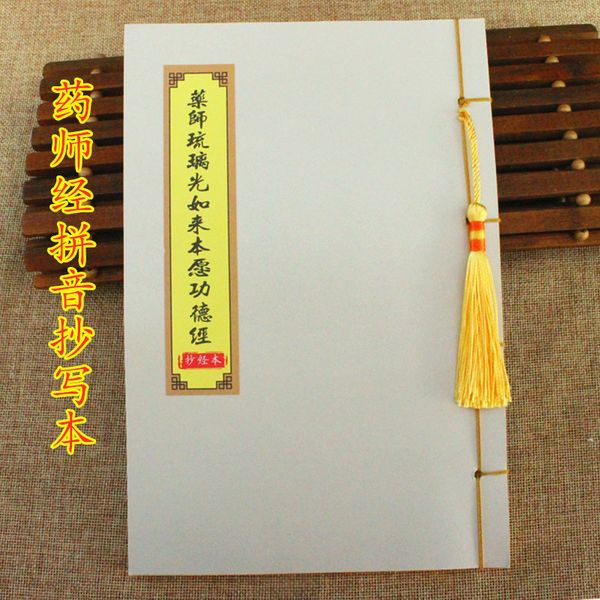 药师经拼音抄写本
藥師琉璃光如来本愿功德經
抄经本